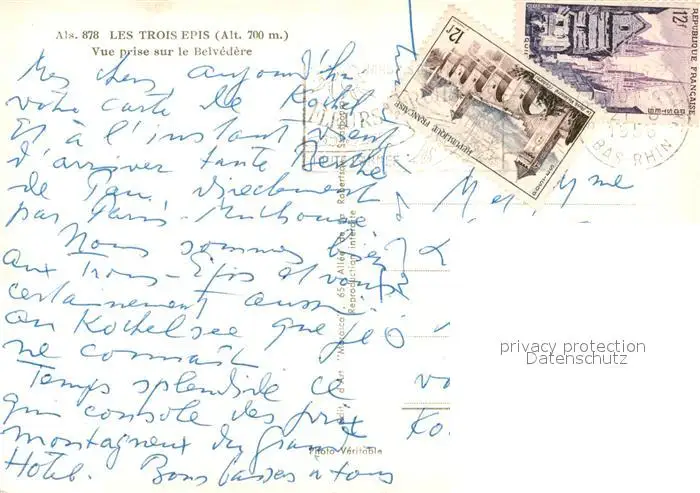 Als. 878 LES TROIS EPIS (Alt. 700 m.)
Vue prise sur le Belvédère
Mes chers aujourd'hui
votre carte de Kochel
Et à l'instant vient
d'arriver tante
de Pau directement
par Paris-Mulhouse
Nous sommes bien
aux Trois-Epis et vous
certainement aussi
au Kochelsee que je
ne connais
Temps splendide ce
qui console des prix
montagneux du Grand
Hotel. Bons baisers à tous
12f
REPUBLIQUE FRANÇAISE
12f
REPUBLIQUE FRANÇAISE
POSTES
BAS RHIN
d'Art "Mona", 65, Allée de la Robertsau, Strasbourg
Reproduction interdite
Photo Véritable
M et Mme
vo
Ko
privacy protection
Datenschutz